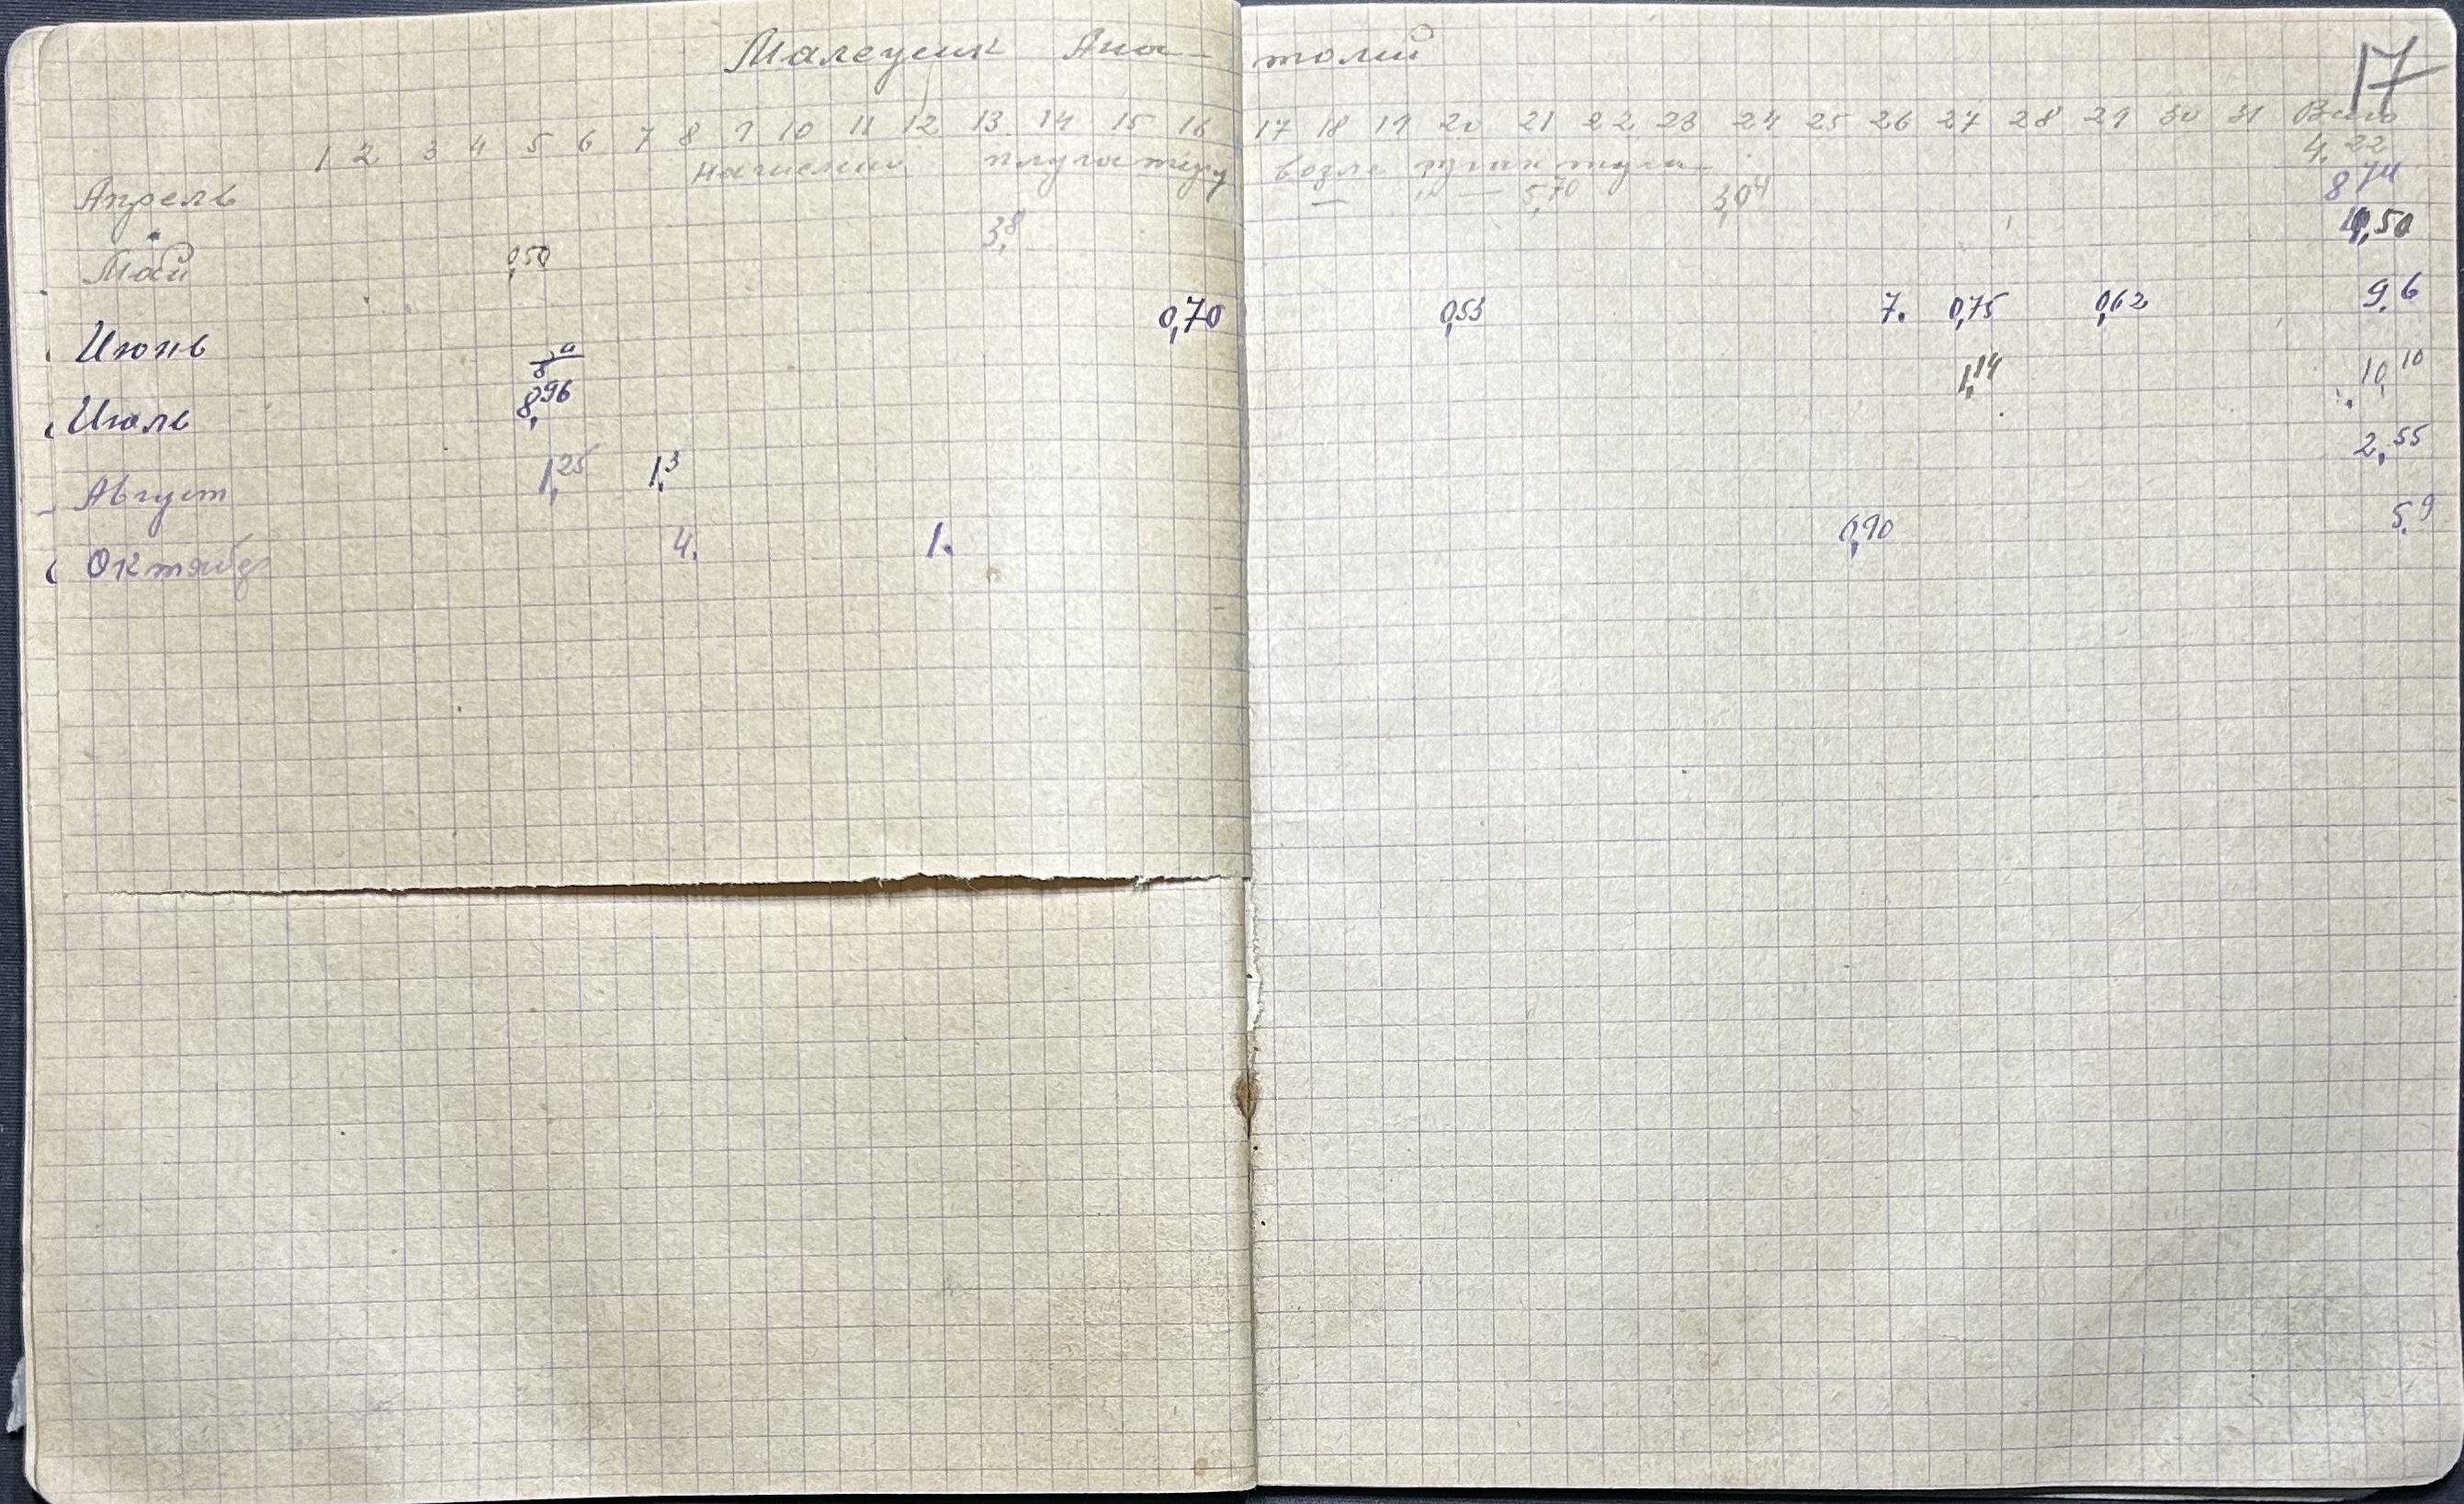 17
Малецик Ана- толий
1 2 3 4 5 6 7 8 9 10 11 12 13 14 15 16 17 18 19 20 21 22 23 24 25 26 27 28 29 30 31 Всего
возле 4.22
Апрель — " — 5,70 3,04 8,74
Май 0,50 3,8 4,50
Июнь 0,70 0,53 7. 0,75 0,62 9,6
Июль 8,96 1,14 10,10
Август 1,25 1,3 2,55
Октябр 4. 1. 0,90 5,9